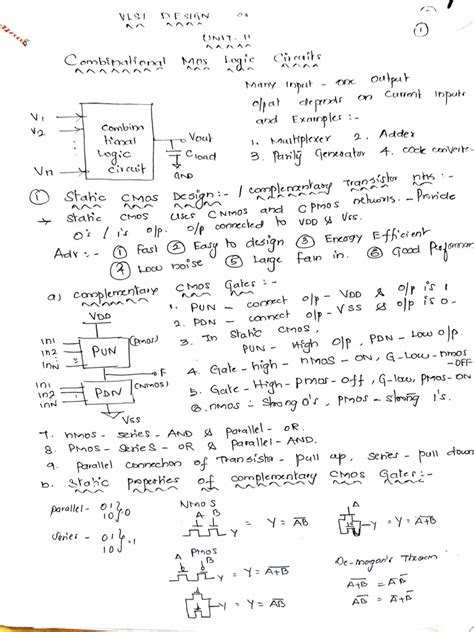 VLSI DESIGN
UNIT-II
①
Combinational MOS Logic Circuits
Many Input - one output
o/pat depends on Current inputs
and Examples :-
1. Multiplexer 2. Adder
3. Parity Generator 4. code converter
V1
V2
Vn
combina
tional
Logic
circuit
Vout
Cload
GND
① Static CMOS Design:- / complementary Transistor
→ Static CMOS uses CNMOS and CPMOS networks. - Provide
0's / 1's o/p. o/p connected to VDD & Vss.
Adv :- ① Fast ② Easy to design ③ Energy Efficient
④ Low noise ⑤ Large fan in. ⑥ Good Performan
a) complementary CMOS Gates :-
VDD
In1
In2
InN
PUN
(PMOS)
F
In1
In2
InN
PDN
(NMOS)
Vss
1. PUN - connect o/p - VDD & o/p is 1
2. PDN - connect o/p - VSS & o/p is 0.
3. In Static CMOS,
PUN - High o/p, PDN - Low o/p
4. Gate-high - nMOS - ON, G-Low-nmos
-OFF
5. Gate-High-Pmos-off, G-low, pmos-ON
6. nmos - strong 0's, pmos - strong 1's.
7. nmos - series - AND & Parallel - OR.
8. Pmos - series - OR & Parallel - AND.
9. Parallel connection of Transisto - pull up, series - pull down
b. Static properties of complementary CMOS Gates:-
Parallel - 01 } 0
10
Series - 01 } 1
10
Nmos
A B
Y = Y = A̅B̅
Y = A+B
Pmos
A B
Y = Y = A+B
Y = AB
De-mogan's Theorem
A+B = A̅B̅
AB = A̅+B̅